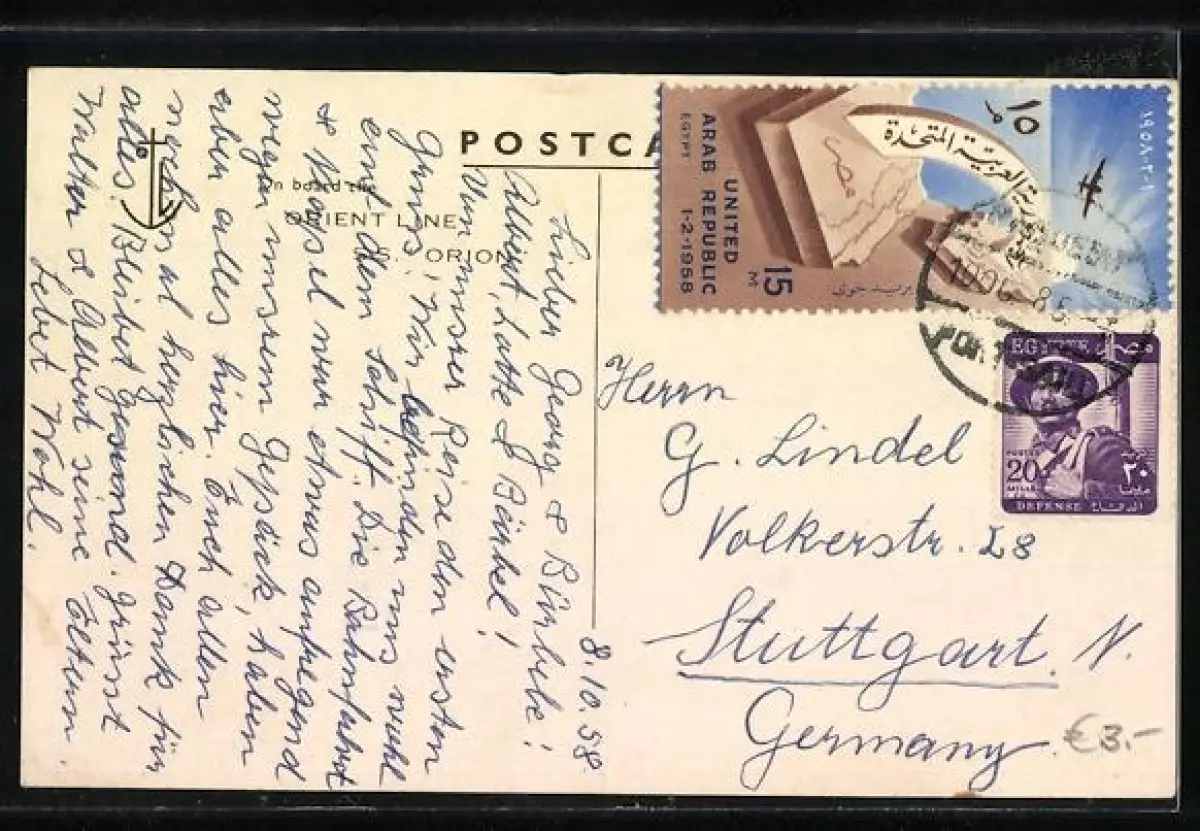 POSTCA
On board the
ORIENT LINE
S.S. ORION
8.10.58.
Lieber Georg & Bürbele!
Albert, Lotte & Bärbel!
Von unser Reise den ersten
Gruss, Wir befinden uns wohl
auf dem Schiff. Die Bahnfahrt
n. Neapel war etwas aufregend
wegen unserem Gepäck, haben
aber alles hier. Euch allen
nochmal herzlichen Dank für
alles. Bleibet gesund. Grüsst
Walter & Albert seine Eltern.
Lebet Wohl.
Herrn
G. Lindel
Volkerstr. 28
Stuttgart N.
Germany
€ 3.-
UNITED
ARAB REPUBLIC
EGYPT
1-2-1958
15 M
١٥ م
الجمهورية العربية المتحدة
مصر
بريد جوى
١-٢-١٩٥٨
EGYPTE
مصر
POSTES
20
MILLS
٢٠
DEFENSE
الدفاع